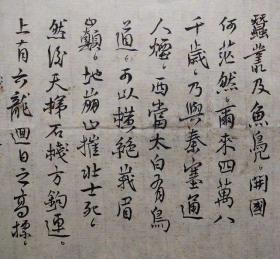 蠶叢及魚鳧。開國
何茫然。爾來四萬八
千歲。乃與秦塞通
人煙。西當太白有鳥
道。可以橫絕峨眉
巔。地崩山摧壯士死。
然後天梯石棧方鉤連。
上有六龍迴日之高標。